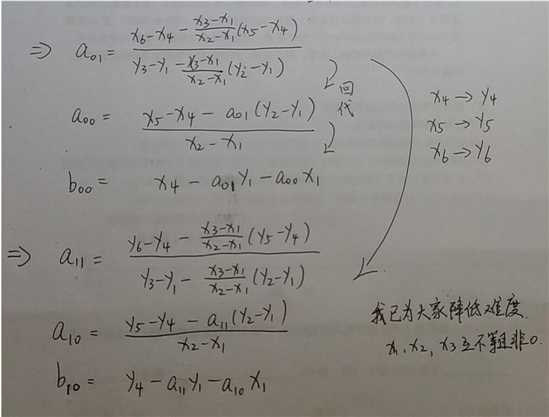 ⇒ a₀₁ = (x₆-x₄-(x₃-x₁)/(x₂-x₁)(x₅-x₄))/(y₃-y₁-(x₃-x₁)/(x₂-x₁)(y₂-y₁))
a₀₀ = (x₅-x₄-a₀₁(y₂-y₁))/(x₂-x₁)
b₀₀ = x₄-a₀₁y₁-a₀₀x₁
回代
x₄→y₄
x₅→y₅
x₆→y₆
⇒ a₁₁ = (y₆-y₄-(x₃-x₁)/(x₂-x₁)(y₅-y₄))/(y₃-y₁-(x₃-x₁)/(x₂-x₁)(y₂-y₁))
a₁₀ = (y₅-y₄-a₁₁(y₂-y₁))/(x₂-x₁)
b₁₀ = y₄-a₁₁y₁-a₁₀x₁
我已为大家降低难度.
x₁,x₂,x₃互不等且非0.